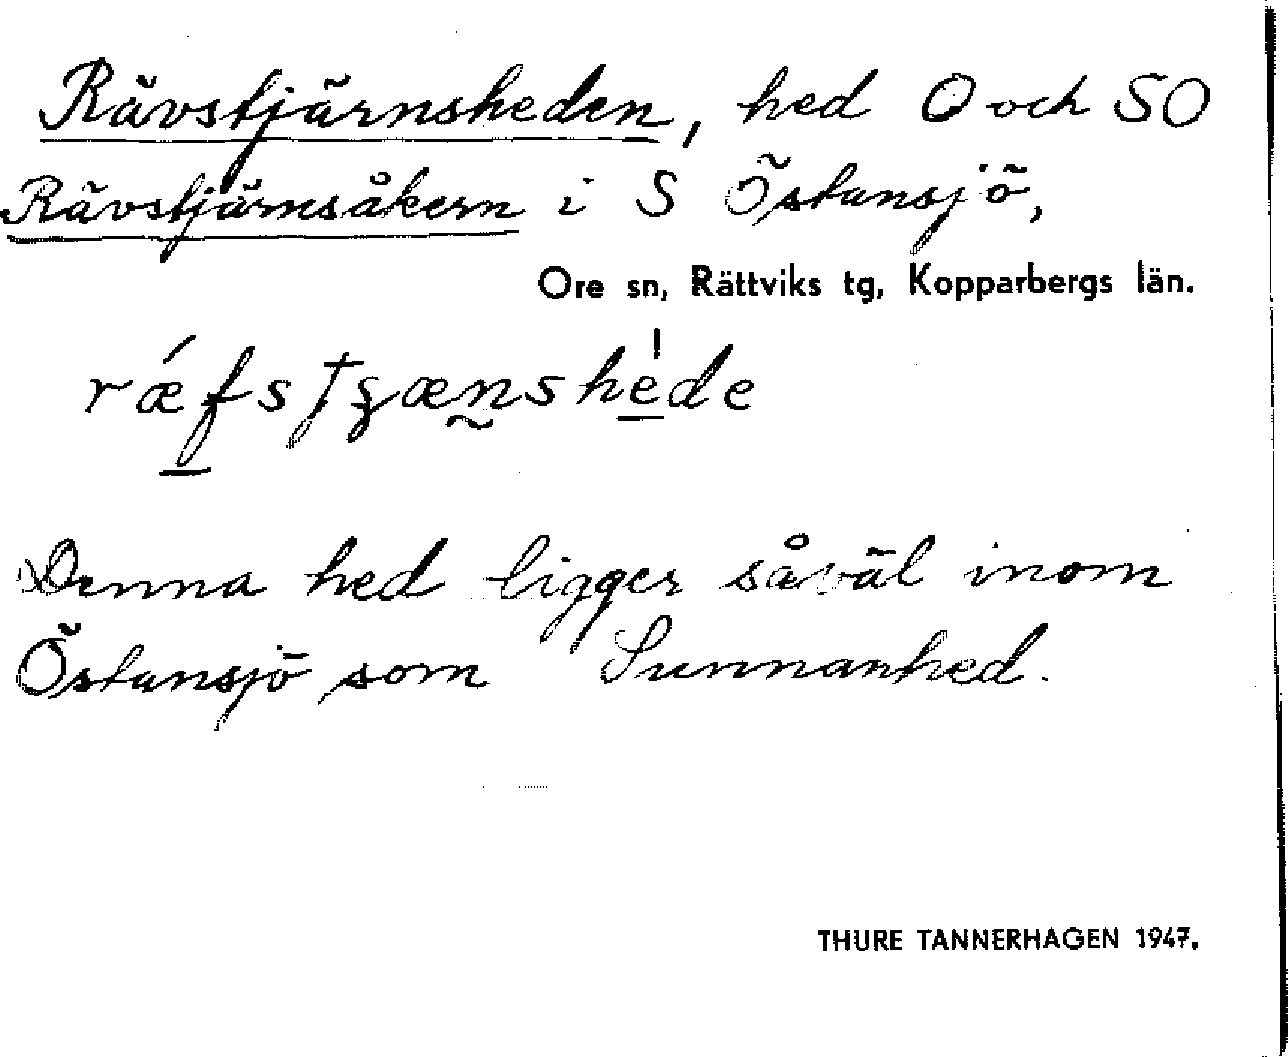 Rävstjärnsheden, hed O och SO
Rävstjärnsåkern i S Östansjö,
Ore sn, Rättviks tg, Kopparbergs län.
rǽfstʒænshède
Denna hed ligger såväl inom
Östansjö som Sunnanhed.
THURE TANNERHAGEN 1947.